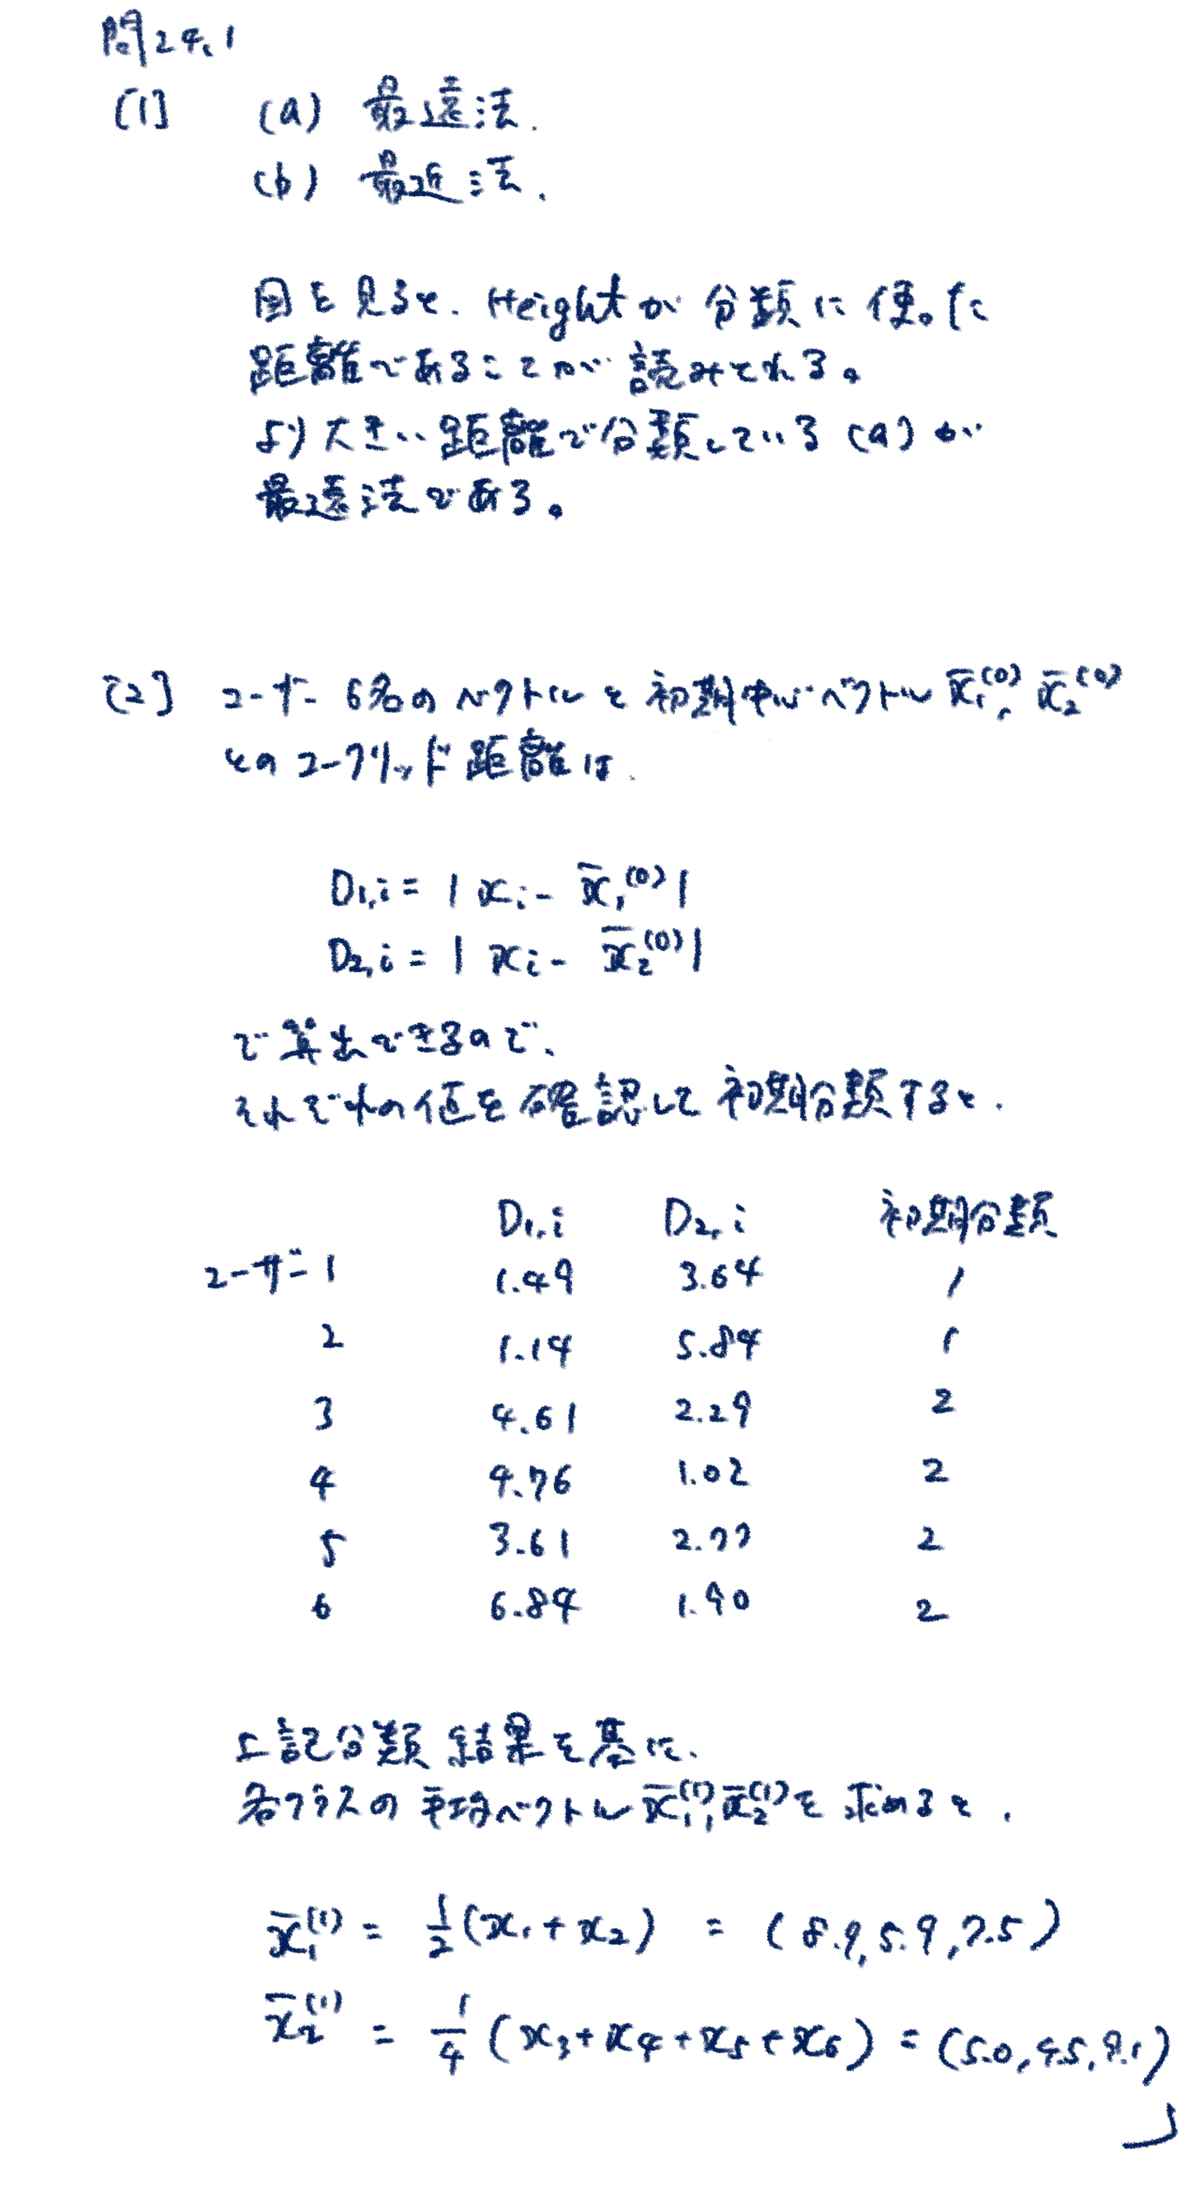 問24.1
[1] (a) 最遠法.
(b) 最近法.
図を見ると. Heightが分類に使った
距離であることが読みとれる。
より大きい距離で分類している(a)が
最遠法である。
[2] ユーザー6名のベクトルと初期中心ベクトル x̄₁⁽⁰⁾, x̄₂⁽⁰⁾
とのユークリッド距離は.
D₁,i = | xi - x̄₁⁽⁰⁾ |
D₂,i = | xi - x̄₂⁽⁰⁾ |
で算出できるので、
それぞれの値を確認して初期分類すると.
D₁,i D₂,i 初期分類
ユーザー 1 1.49 3.64 1
2 1.14 5.84 1
3 4.61 2.29 2
4 4.76 1.02 2
5 3.61 2.77 2
6 6.84 1.90 2
上記分類結果を基に、
各クラスの平均ベクトル x̄₁⁽¹⁾, x̄₂⁽¹⁾を求めると.
x̄₁⁽¹⁾ = 1/2 (x₁ + x₂) = (8.9, 5.9, 7.5)
x̄₂⁽¹⁾ = 1/4 (x₃ + x₄ + x₅ + x₆) = (5.0, 4.5, 8.1)